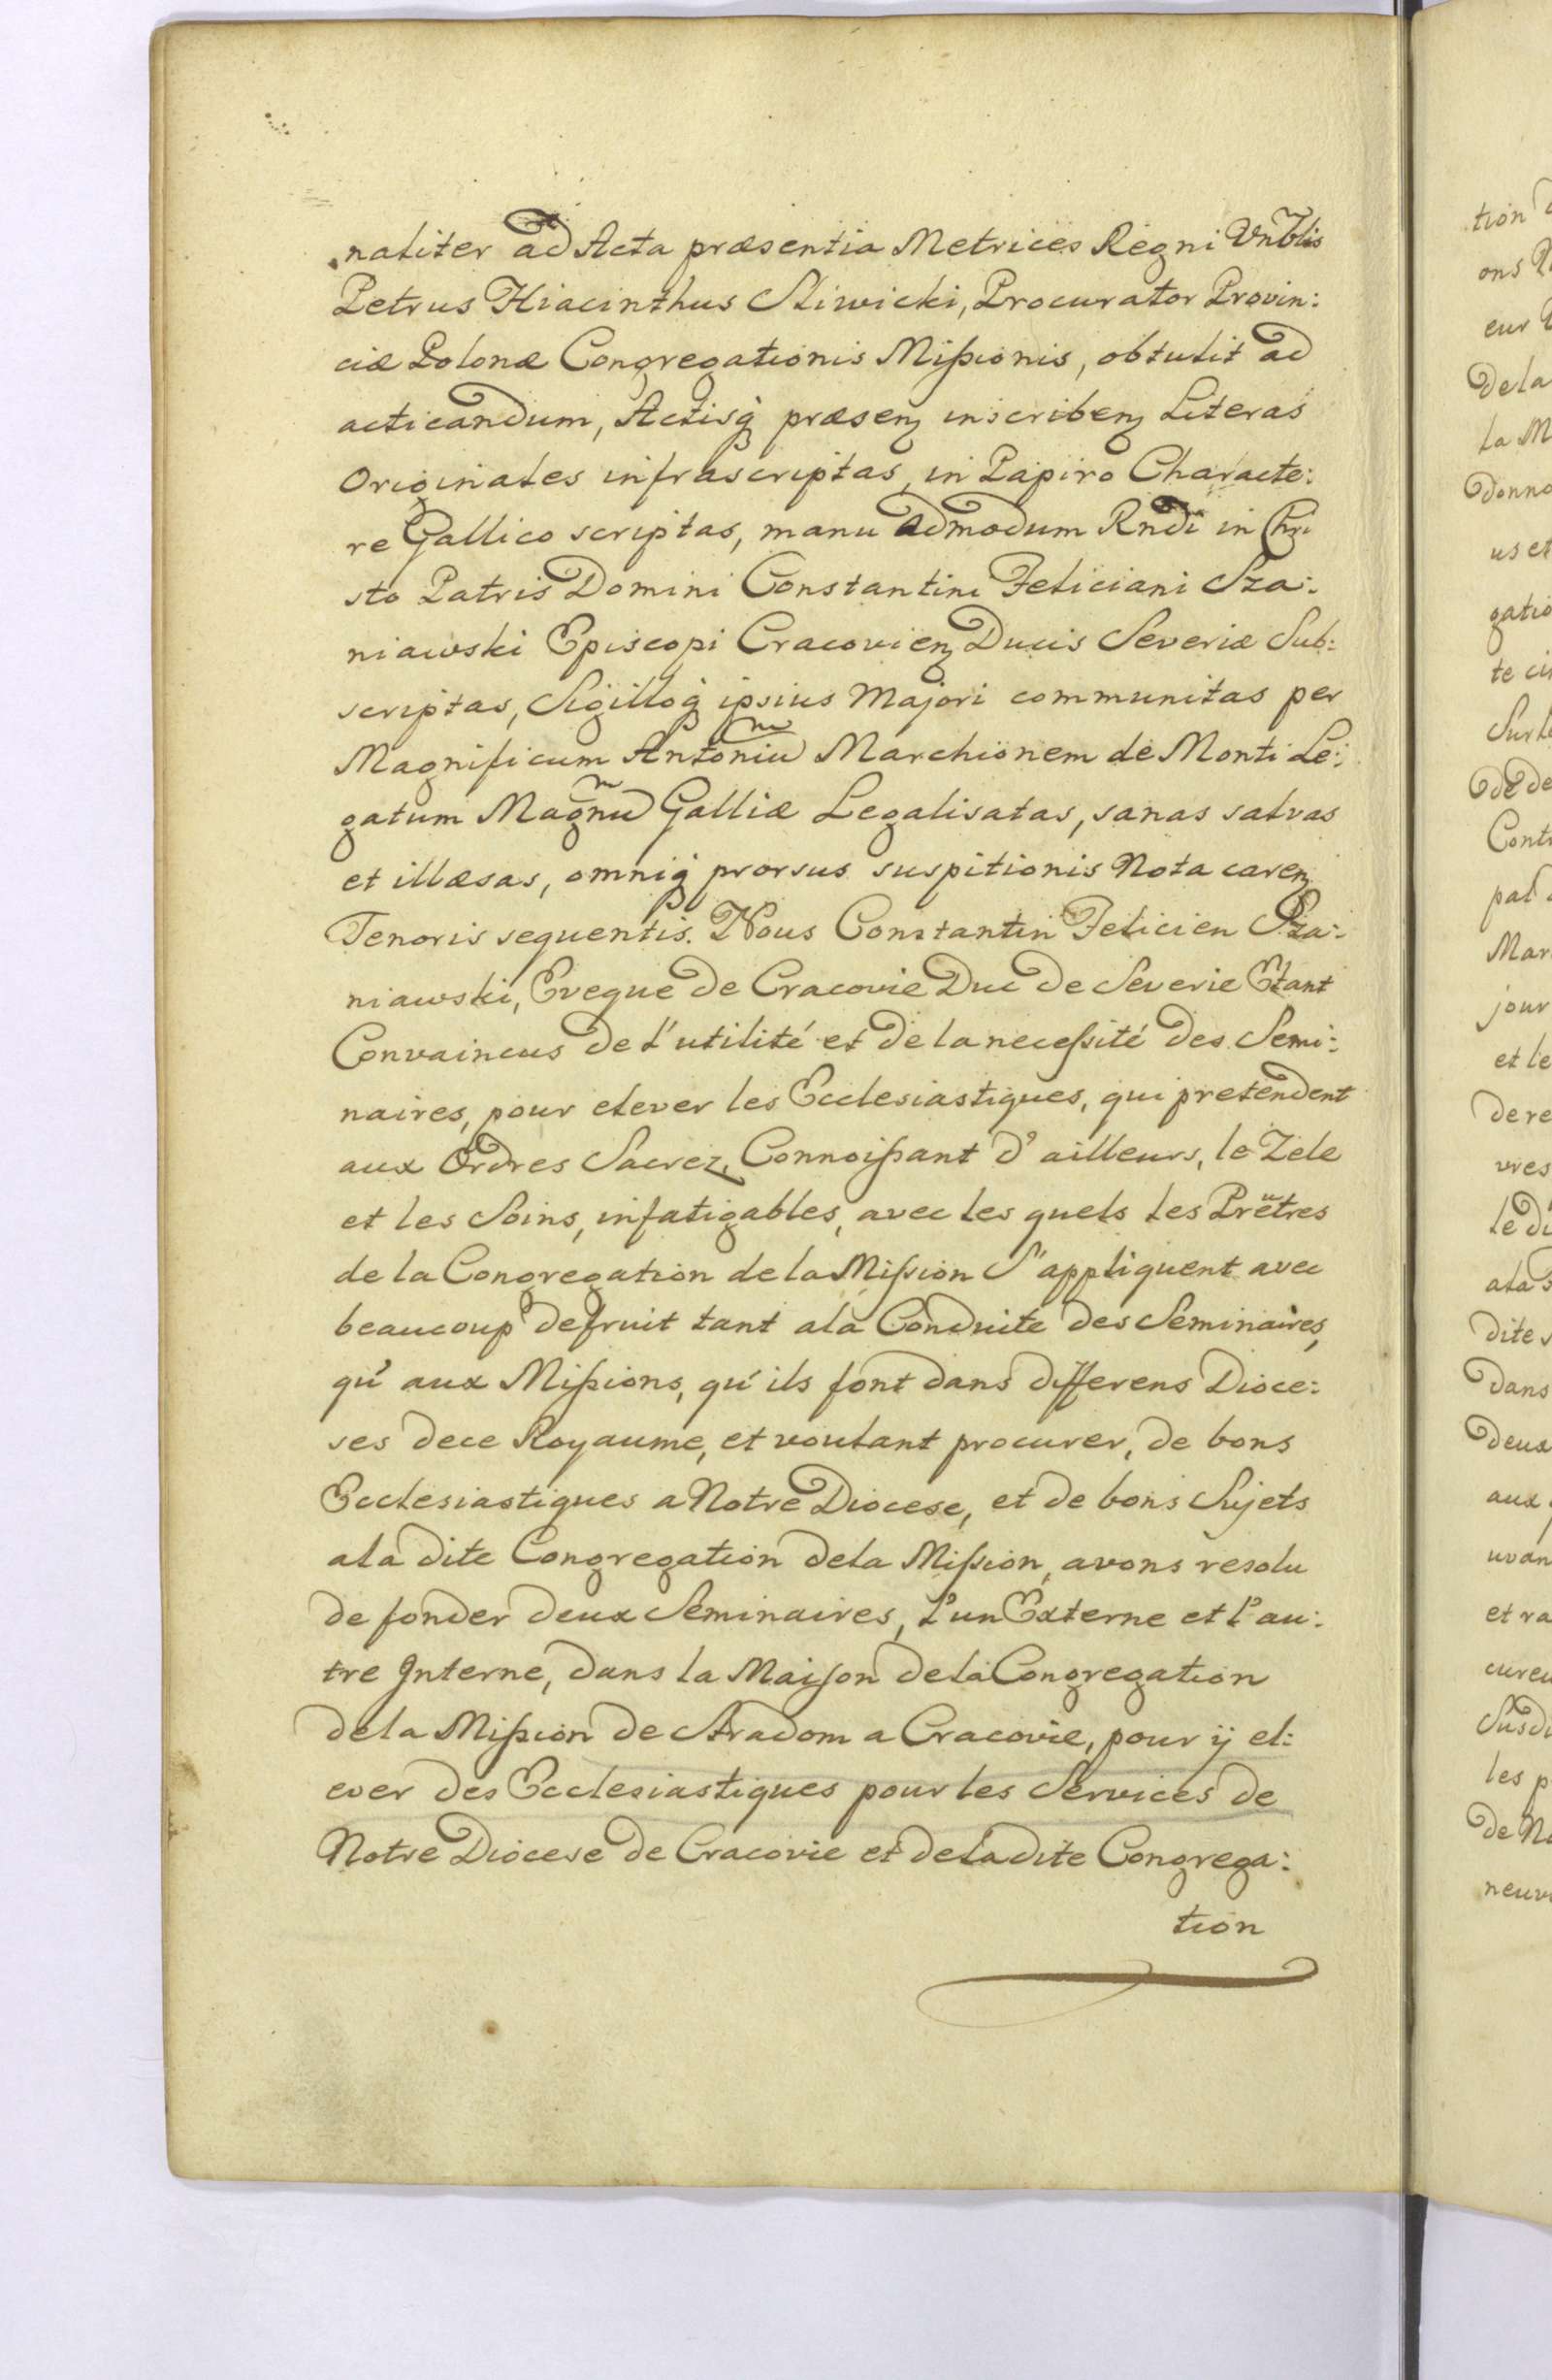 naliter ad Acta præsentia Metrices Regni Vnblis
Petrus Hiacinthus Sliwicki, Procurator Provin:
ciæ Polonæ Congregationis Mißionis, obtulit ad
acticandum, Actisq́ præsenz inscribenz Literas
Originales infrascriptas, in Papiro Characte:
re Gallico scriptas, manu admodum Rndi in Chri
sto Patris Domini Constantini Feliciani Sza:
niawski Episcopi Cracovienz Ducis Severiæ Sub:
scriptas, Sigilloq́ ipsius Majori communitas per
Magnificum Antoniũ Marchionem de Monti Le:
gatum Magnũ Galliæ Legalisatas, sanas salvas
et illæsas, omniq́ prorsus suspitionis Nota carenz
Tenoris sequentis. Nous Constantin Felicien Sza:
niawski, Eveque de Cracovie Duc de Severie Etant
Convaincus de l'utilité et de la neceſsité des Semi:
naires, pour elever les Ecclesiastiques, qui pretendent
aux Ordres Sacrez, Connoißant d'ailleurs, le Zele
et les Soins, infatigables, avec les quels les Prëtres
de la Congregation de la Mißion S'appliquent avec
beaucoup defruit tant ala Conduite des Seminaires,
qu'aux Mißions, qu'ils font dans differens Dioce:
ses dece Royaume, et voulant procurer, de bons
Ecclesiastiques a Notre Diocese, et de bons Sujets
ala dite Congregation dela Mißion, avons resolu
de fonder deux Seminaires, l'un Externe et l'au:
tre Interne, dans la Maiſon dela Congregation
dela Mißion de Stradom a Cracovie, pour ÿ el:
ever des Ecclesiastiques pour les Services de
Notre Diocese de Cracovie et deladite Congrega:
tion
tion
ons
eur
Dela
la M
Donno
us et
gatio
te ci
Sur l
Cont
pal
Mar
jour
et le
de re
vres
le di
ala s
dite
Dans
Deux
aux
uvan
et ra
cureu
Susdi
les p
de No
neuv